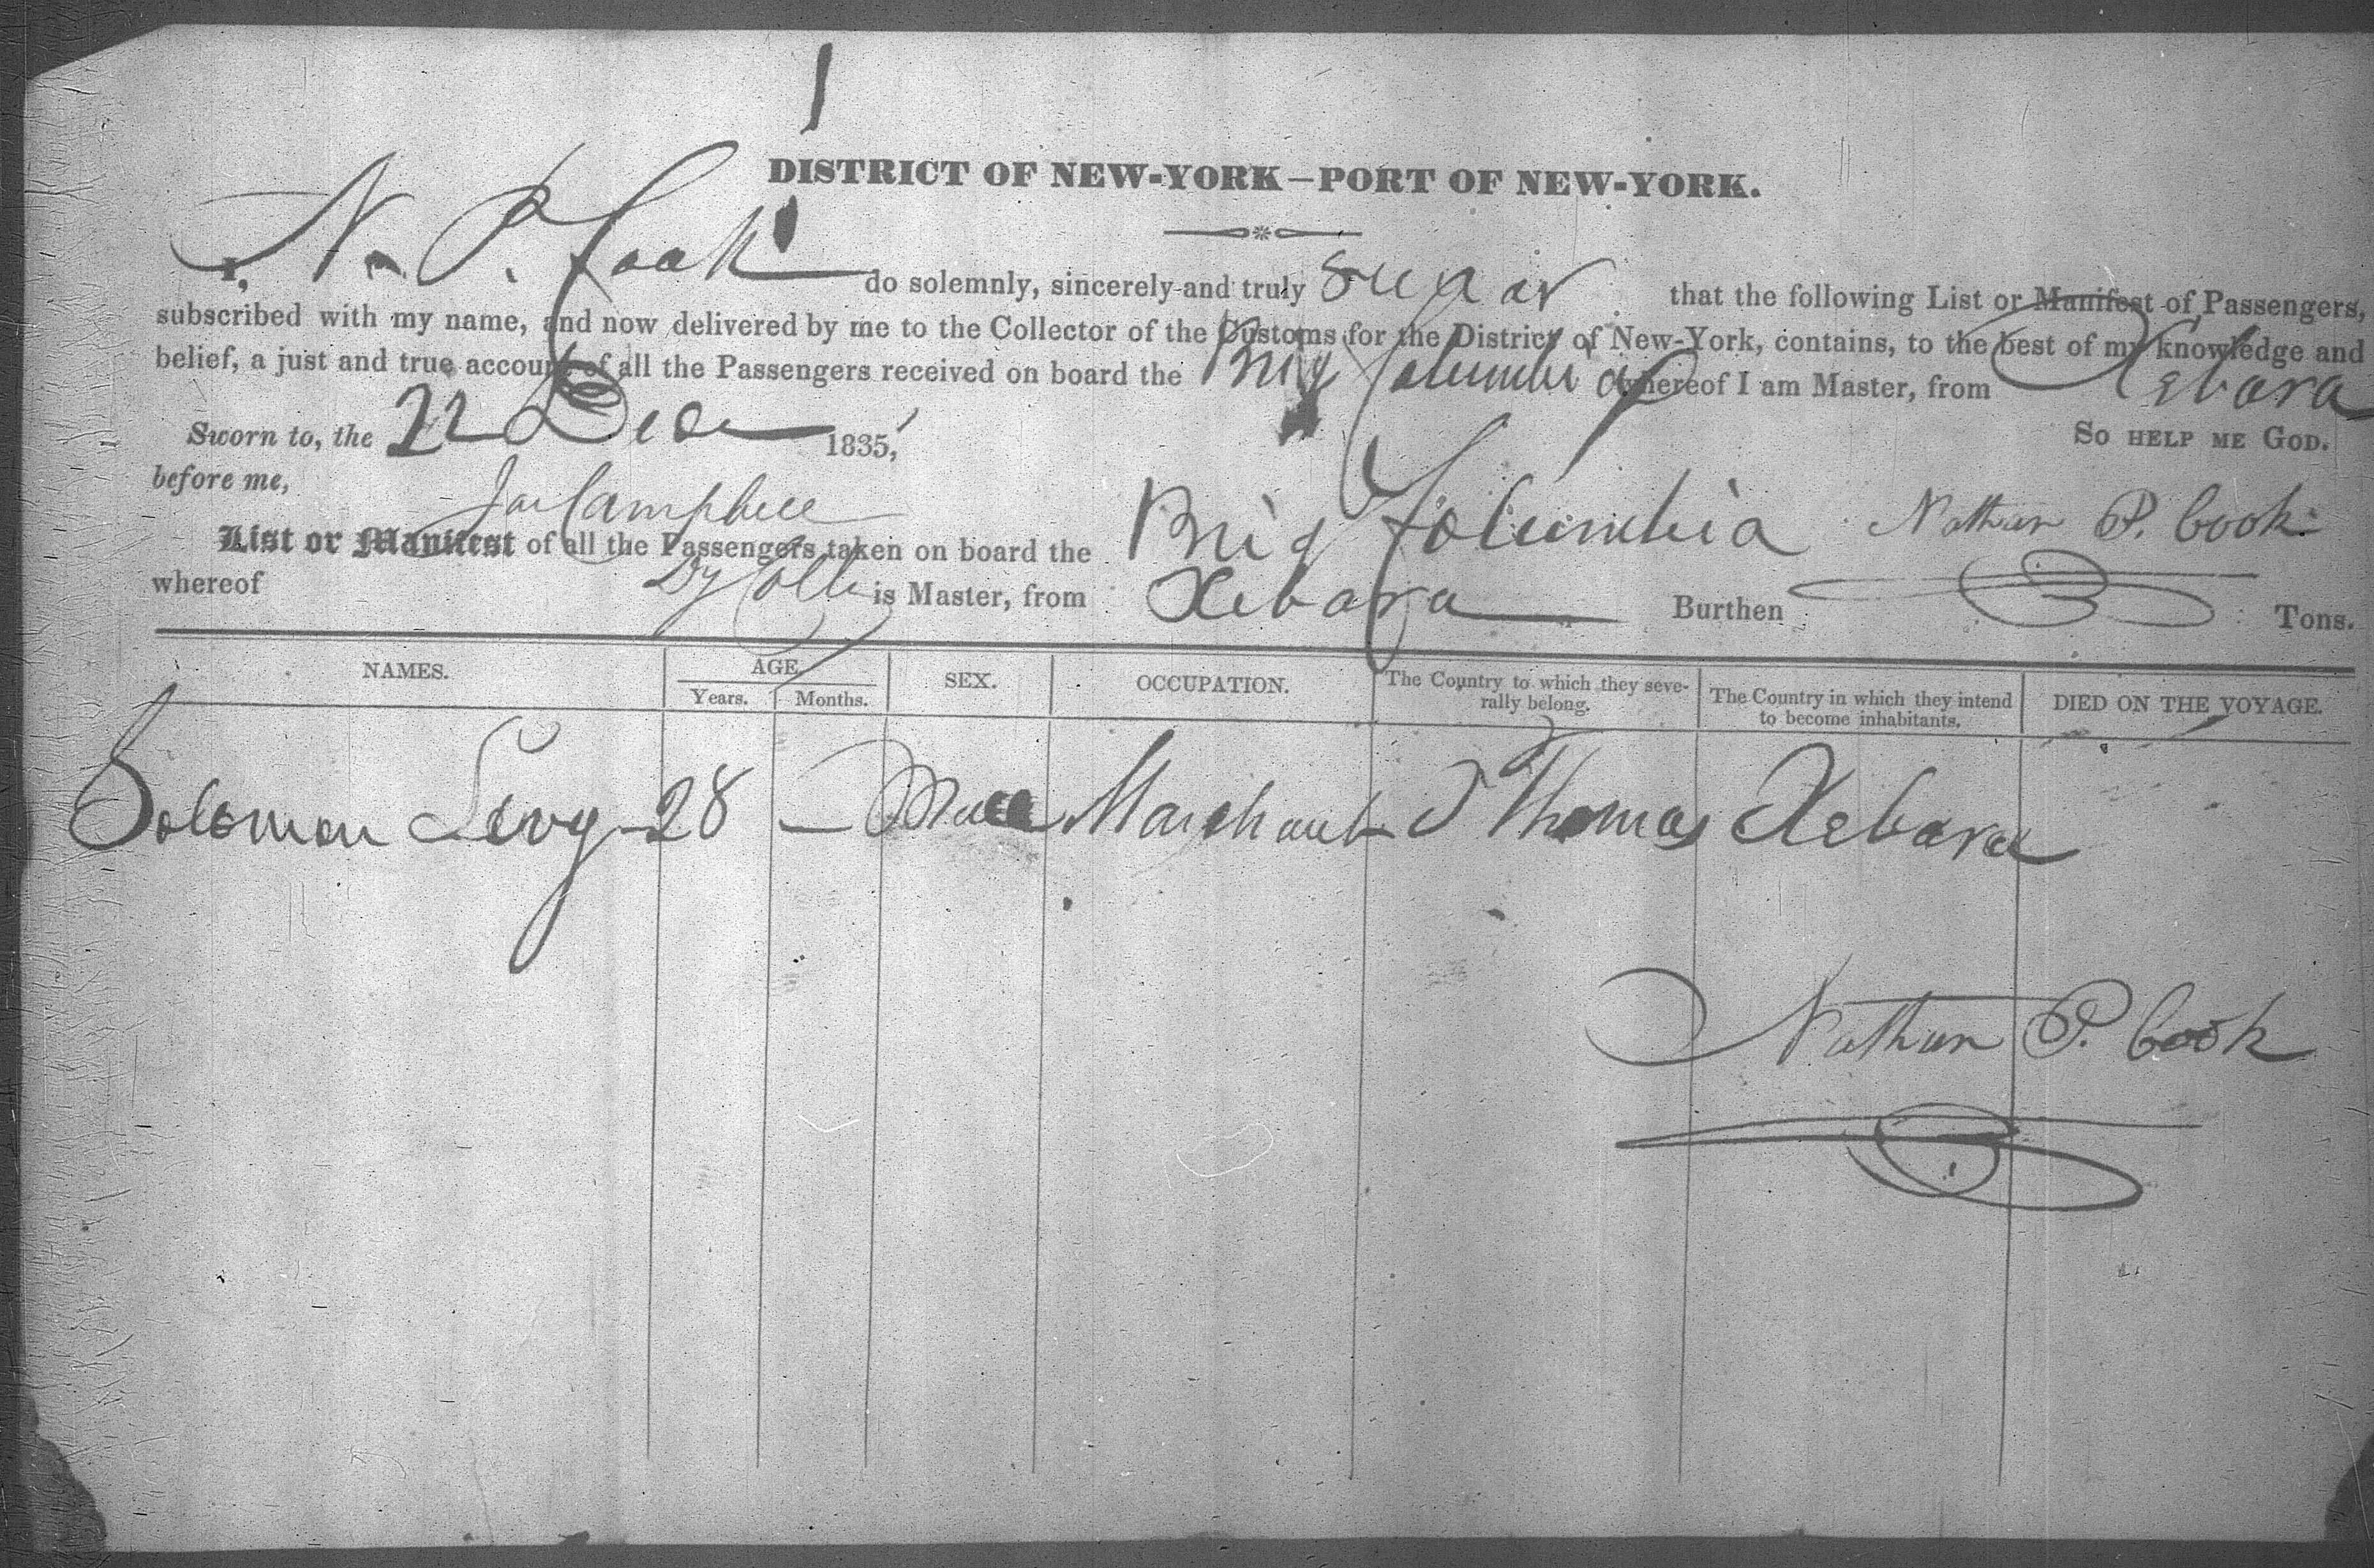 1
DISTRICT OF NEW-YORK—PORT OF NEW-YORK.
I, N. P. Cook do solemnly, sincerely and truly swear that the following List or Manifest of Passengers,
subscribed with my name, and now delivered by me to the Collector of the Customs for the District of New-York, contains, to the best of my knowledge and
belief, a just and true account of all the Passengers received on board the Brig Columbia whereof I am Master, from Xebara
Sworn to, the 22 Decm 1835, So HELP ME GOD.
before me, Jas Campbell
Nathan P. Cook
List or Manifest of all the Passengers taken on board the Brig Columbia
whereof Dy Coll is Master, from Xebara Burthen Tons.
NAMES. AGE. SEX. OCCUPATION. The Country to which they seve- The Country in which they intend DIED ON THE VOYAGE.
Years. Months. rally belong. to become inhabitants.
Solomon Levy 28 — Male Marchant St Thomas Xebara
Nathan P. Cook